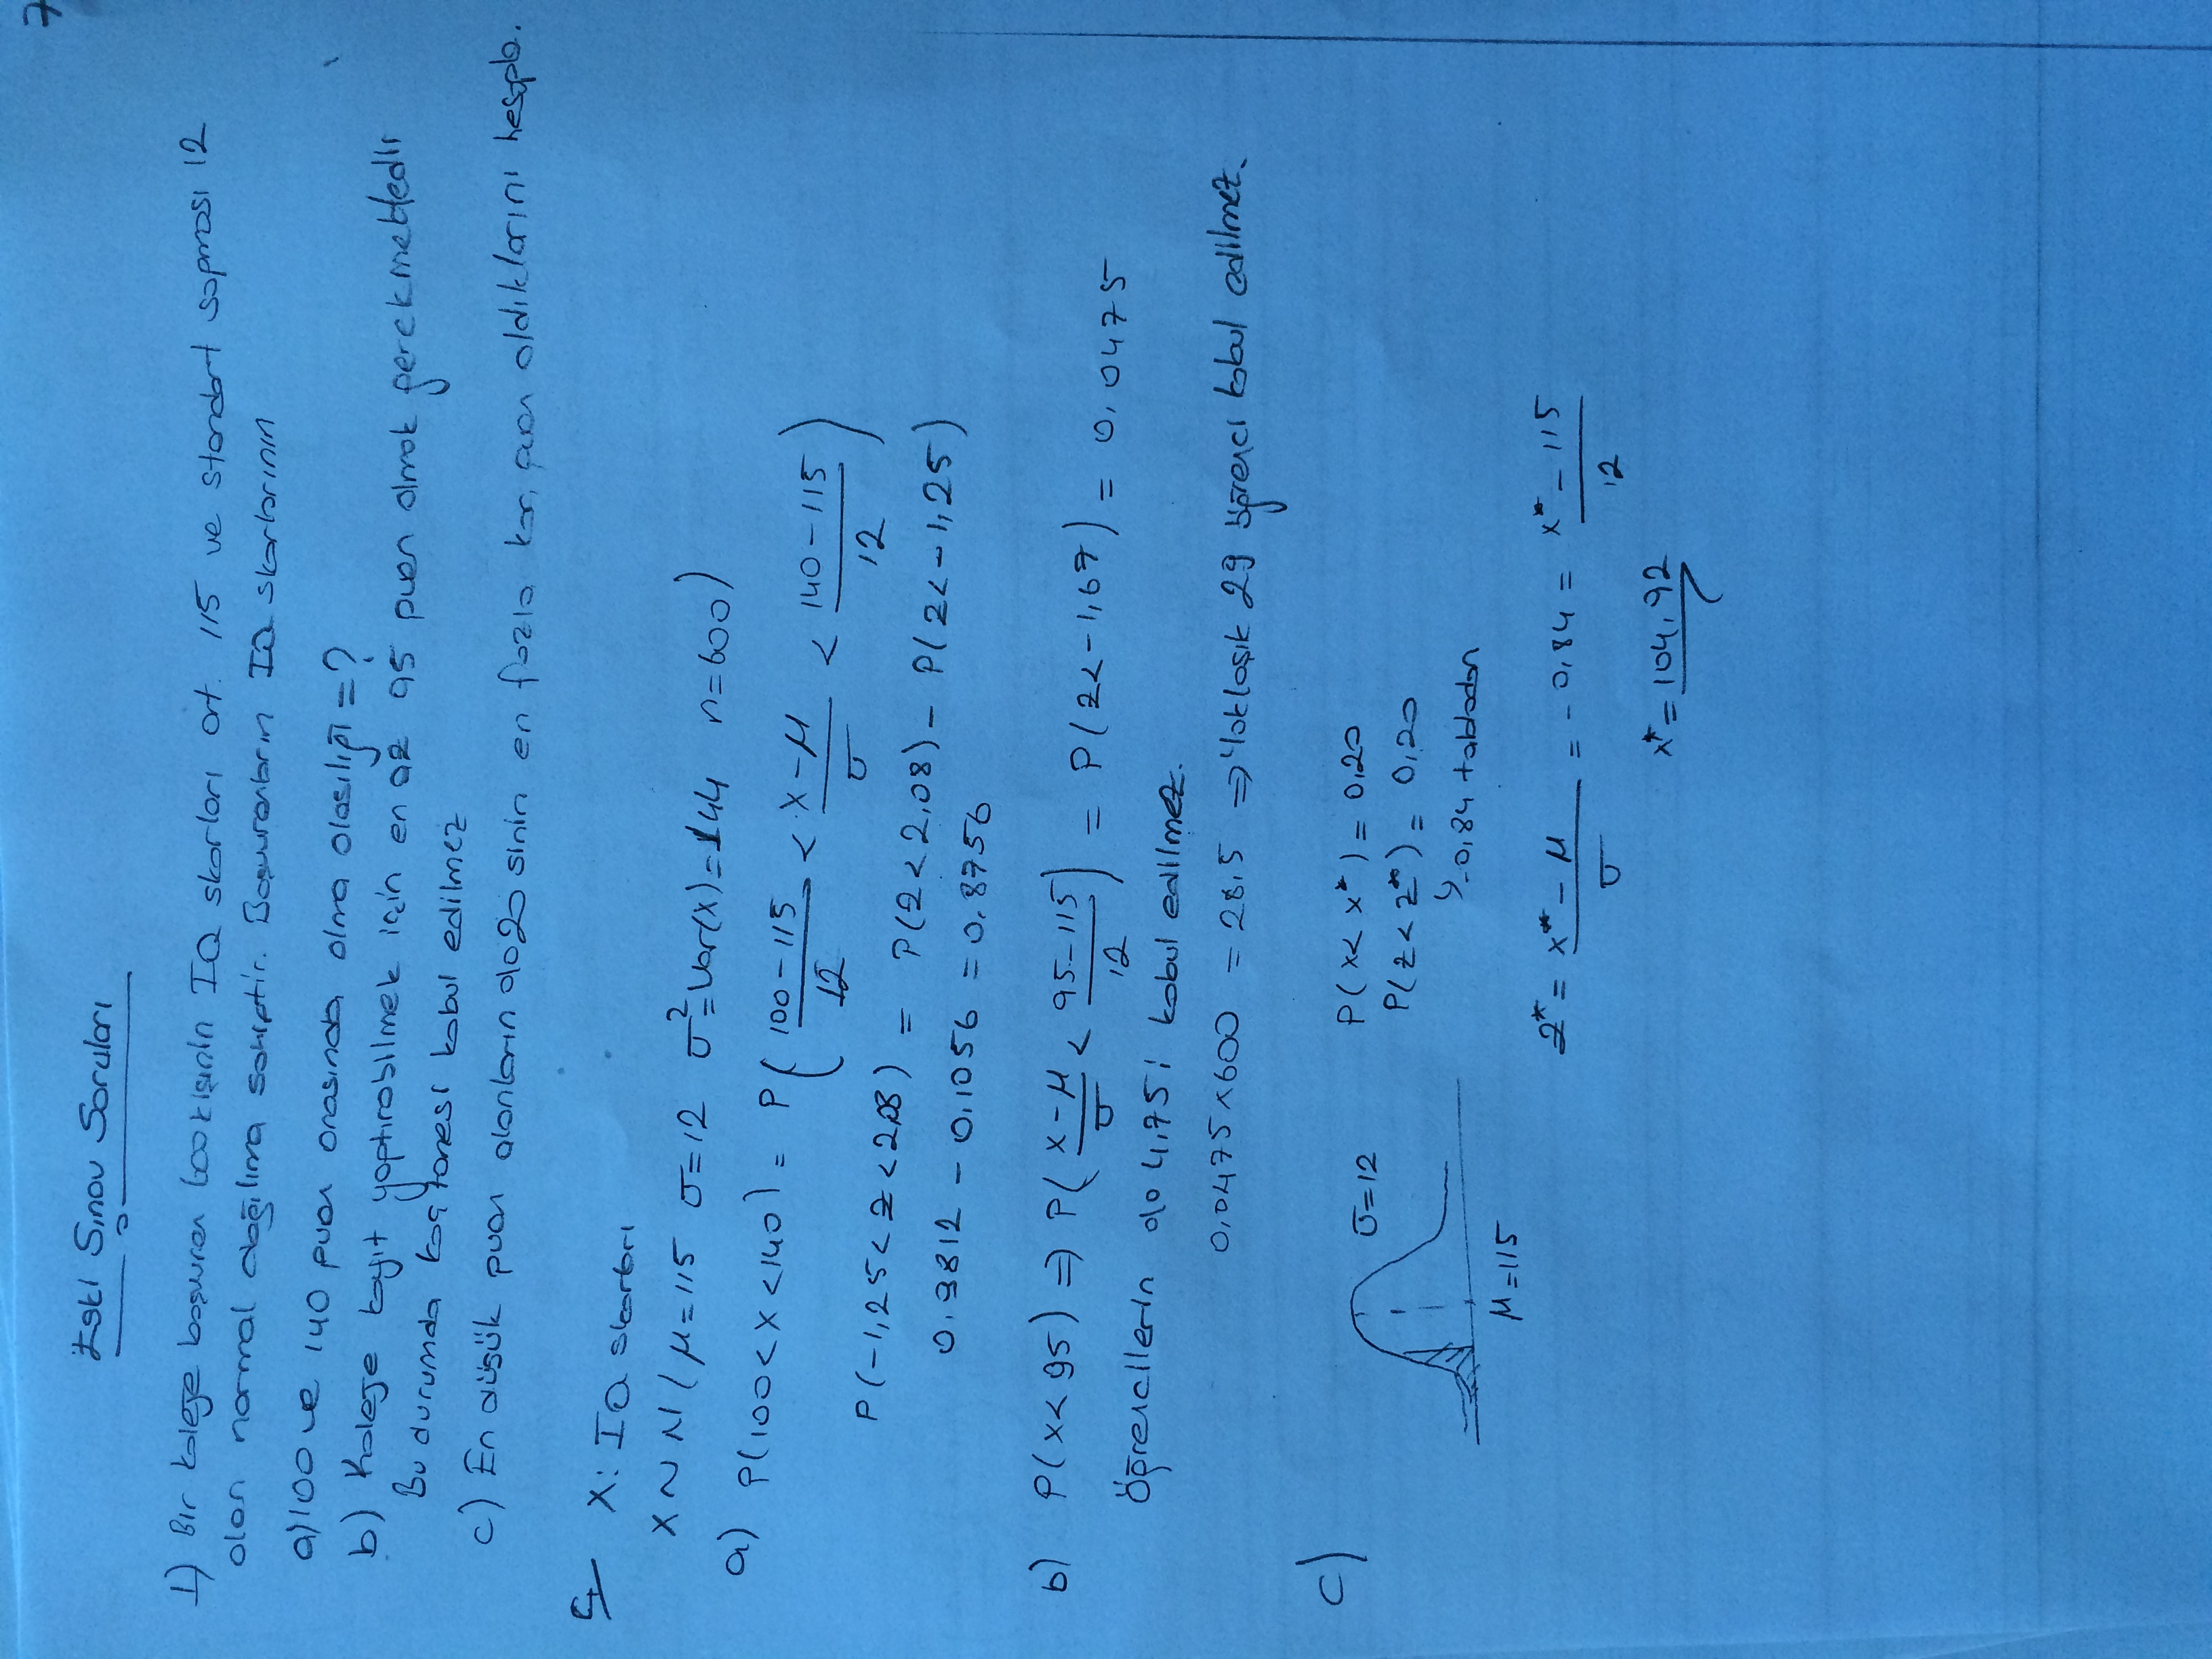 7
Eski Sınav Soruları
1) Bir koleje başvuran 600 kişinin IQ skorları ort. 115 ve standart sapması 12
olan normal dağılıma sahiptir. Başvuranların IQ skorlarının
a) 100 ve 140 puan arasında olma olasılığı = ?
b) Koleje kayıt yaptırabilmek için en az 95 puan almak gerekmektedir
Bu durumda kaç tanesi kabul edilmez
c) En düşük puan alanların %20 sinin en fazla kaç puan aldıklarını hesapla.
Ç
X: IQ skorları
X ~ N ( μ=115 σ=12 σ²=Var(x)=144 n=600)
a) P(100<X<140) = P( (100-115)/12 < (X-μ)/σ < (140-115)/12 )
P(-1,25<Z<2,08) = P(Z<2,08) - P(Z<-1,25)
0,9812 - 0,1056 = 0,8756
b) P(X<95) ⇒ P( (X-μ)/σ < (95-115)/12 ) = P(Z<-1,67) = 0,0475
Öğrencilerin %4,75i kabul edilmez.
0,0475x600 = 28,5 ⇒ Yaklaşık 29 öğrenci kabul edilmez.
c)
σ=12
μ=115
P(X<x*) = 0,20
P(Z<z*) = 0,20
↳ -0,84 tablodan
z* = (x*-μ)/σ = -0,84 = (x*-115)/12
x* = 104,92